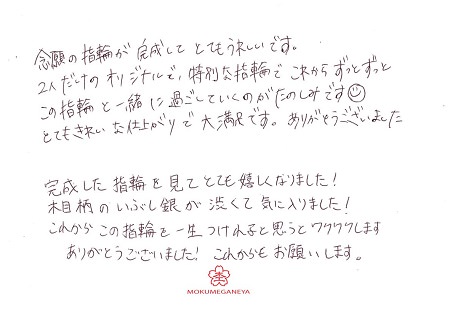 念願の指輪が完成してとてもうれしいです。
2人だけのオリジナルで、特別な指輪でこれからずっとずっと
この指輪と一緒に過ごしていくのがたのしみです☺
とてもきれいな仕上がりで大満足です。ありがとうございました
完成した指輪を見てとても嬉しくなりました!
木目柄のいぶし銀が渋くて気に入りました!
これからこの指輪を一生つけれると思うとワクワクします
ありがとうございました! これからもお願いします。
MOKUMEGANEYA